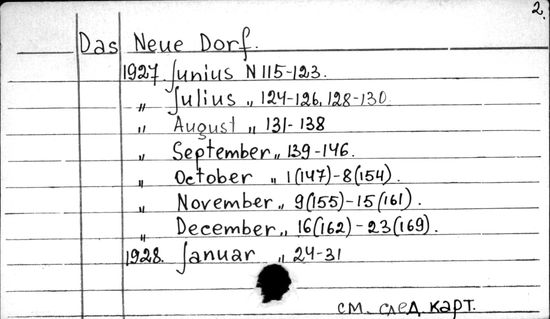 2.
Das Neue Dorf.
1927. Junius N 115-123.
„ Julius „ 124-126, 128-130.
„ August „ 131-138
„ September „ 139-146.
„ October „ 1(147)-8(154).
„ November „ 9(155)-15(161).
„ December „ 16(162)-23(169).
1928. Januar „ 24-31
см. след. карт.